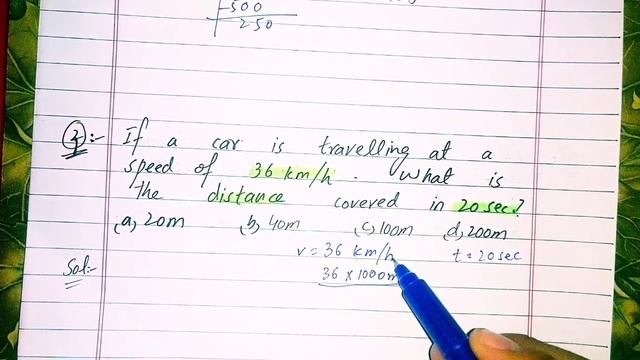 500
250
Q:- If a car is travelling at a
speed of 36 km/h. What is
the distance covered in 20 sec?
(a) 20m (b) 40m (c) 100m (d) 200m
v = 36 km/h t = 20 sec
Sol:- 36 x 1000m